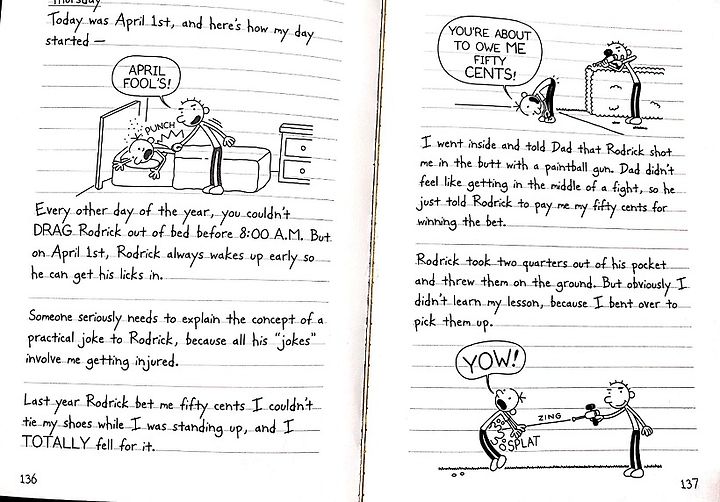 Thursday
Today was April 1st, and here's how my day
started—
APRIL
FOOL'S!
PUNCH
Every other day of the year, you couldn't
DRAG Rodrick out of bed before 8:00 A.M. But
on April 1st, Rodrick always wakes up early so
he can get his licks in.
Someone seriously needs to explain the concept of a
practical joke to Rodrick, because all his "jokes"
involve me getting injured.
Last year Rodrick bet me fifty cents I couldn't
tie my shoes while I was standing up, and I
TOTALLY fell for it.
136
YOU'RE ABOUT
TO OWE ME
FIFTY
CENTS!
I went inside and told Dad that Rodrick shot
me in the butt with a paintball gun. Dad didn't
feel like getting in the middle of a fight, so he
just told Rodrick to pay me my fifty cents for
winning the bet.
Rodrick took two quarters out of his pocket
and threw them on the ground. But obviously I
didn't learn my lesson, because I bent over to
pick them up.
YOW!
ZING
SPLAT
137